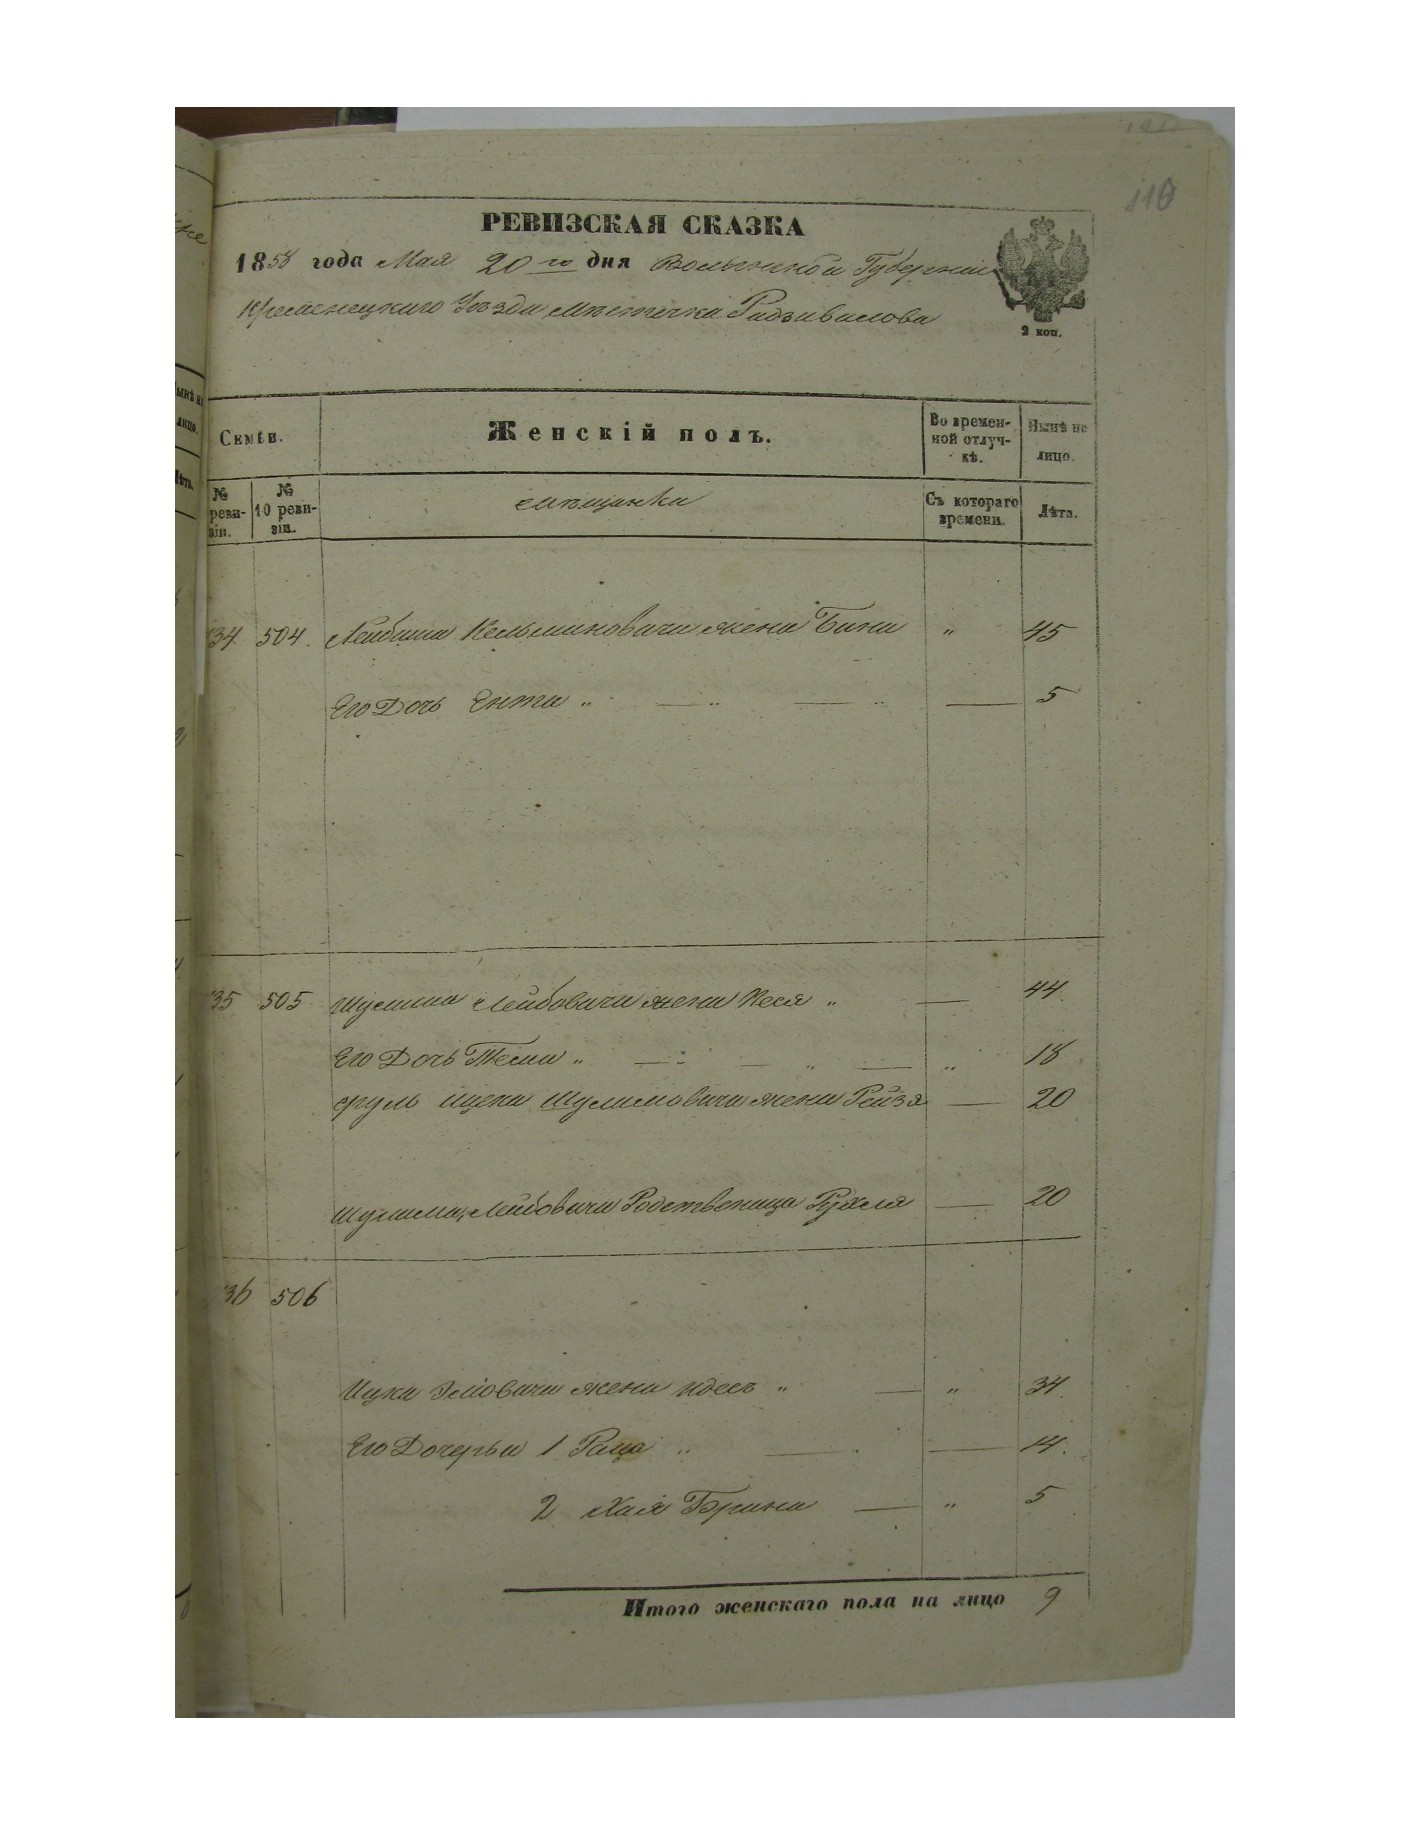 110
РЕВИЗСКАЯ СКАЗКА
1858 года Мая 20 го дня Волынской Губерніи
Кременецкаго Уѣзда мѣстечка Радзивилова
2 коп.
Семьи.
Женскій полъ.
Во времен-
ной отлуч-
кѣ.
Нынѣ на
лицо.
№
реви-
зіи.
№
10 реви-
зіи.
мѣщанки
Съ котораго
времени.
Лѣта.
34 504. Лейбиша Кельмановича жена Бина " 45
Его Дочь Ента " — " — " — 5
35 505 Шулима Лейбовича жена Кеся " — 44
Его Дочь Тема " — " — " — " 18
Сруль Ицека Шулимовича жена Рейзя — 20
Шулима Лейбовича Родственица Рухля — 20
36 506
Ицка Эліовича жена Идесъ " — " 34.
Его Дочерьи 1 Раца " — — 14.
2 Хая Брина — " 5
Итого женскаго пола на лицо 9